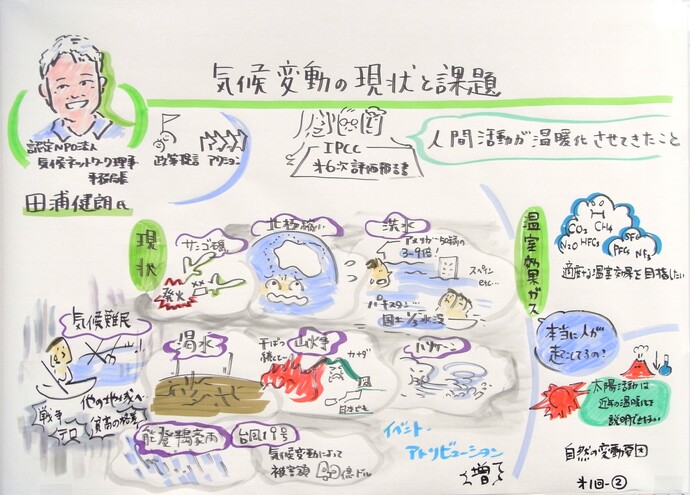 気候変動の現状と課題
認定NPO法人
気候ネットワーク理事
事務局長
田浦健朗氏
政策提言 アクション
IPCC
第6次評価報告書
人間活動が温暖化させてきたこと
現状
サンゴ礁
発火
洪水
3-9倍!
スペイン
etc…
パキスタン…
国土1/3水没
気候難民
戦争
テロ
他の地域へ
貧富の格差
渇水
山火事
干ばつ
続くと…
カナダ
日本でも
ハリケーン
能登 豪雨
台風19号
気候変動によって
被害額 億ドル
イベント・
アトリビューション
増
温室効果ガス
H
O
CO2 CH4
N2O HFCs SF6
PFCs NF3
適度な温室効果を目指したい
本当に人が
起こしてるの?
太陽活動は
近年の温暖化を
説明できない
自然の変動要因
第1回-②